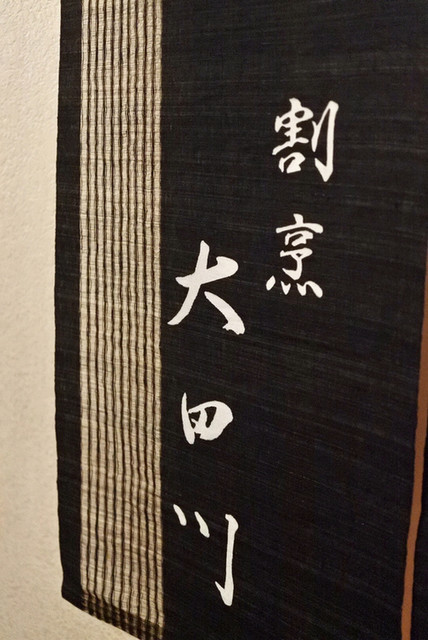 割烹
大田川